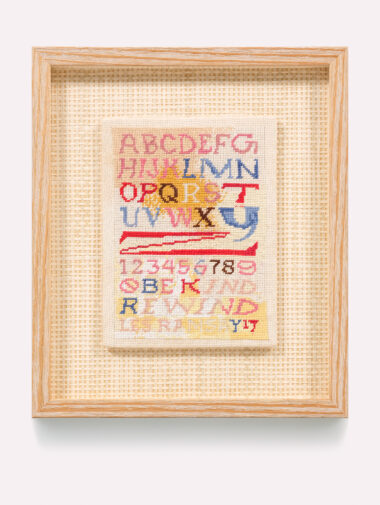 ABCDEFG
HIJKLMN
OPQRST
UVWXY
Z
123456789
0 BE KIND
REWIND
LES